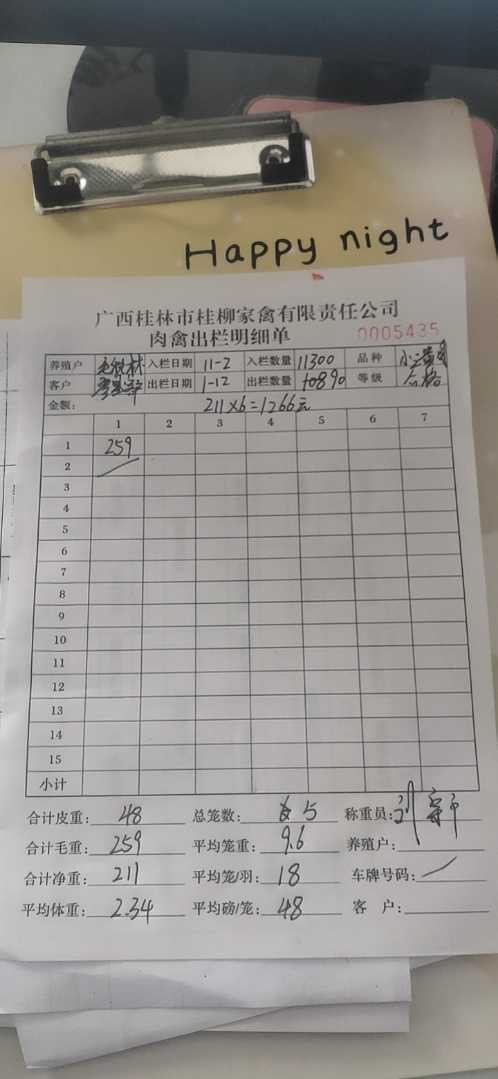 Happy night
广西桂林市桂柳家禽有限责任公司
肉禽出栏明细单
0005435
养殖户 入栏日期 11-2 入栏数量 11300 品种
客户 出栏日期 1-12 出栏数量 10890 等级 合格
金额: 211×6=1266元
1 2 3 4 5 6 7
1 259
2
3
4
5
6
7
8
9
10
11
12
13
14
15
小计
合计皮重: 48 总笼数: 5 称重员:
合计毛重: 259 平均笼重: 9.6 养殖户:
合计净重: 211 平均笼/羽: 18 车牌号码:
平均体重: 2.34 平均磅/笼: 48 客 户: